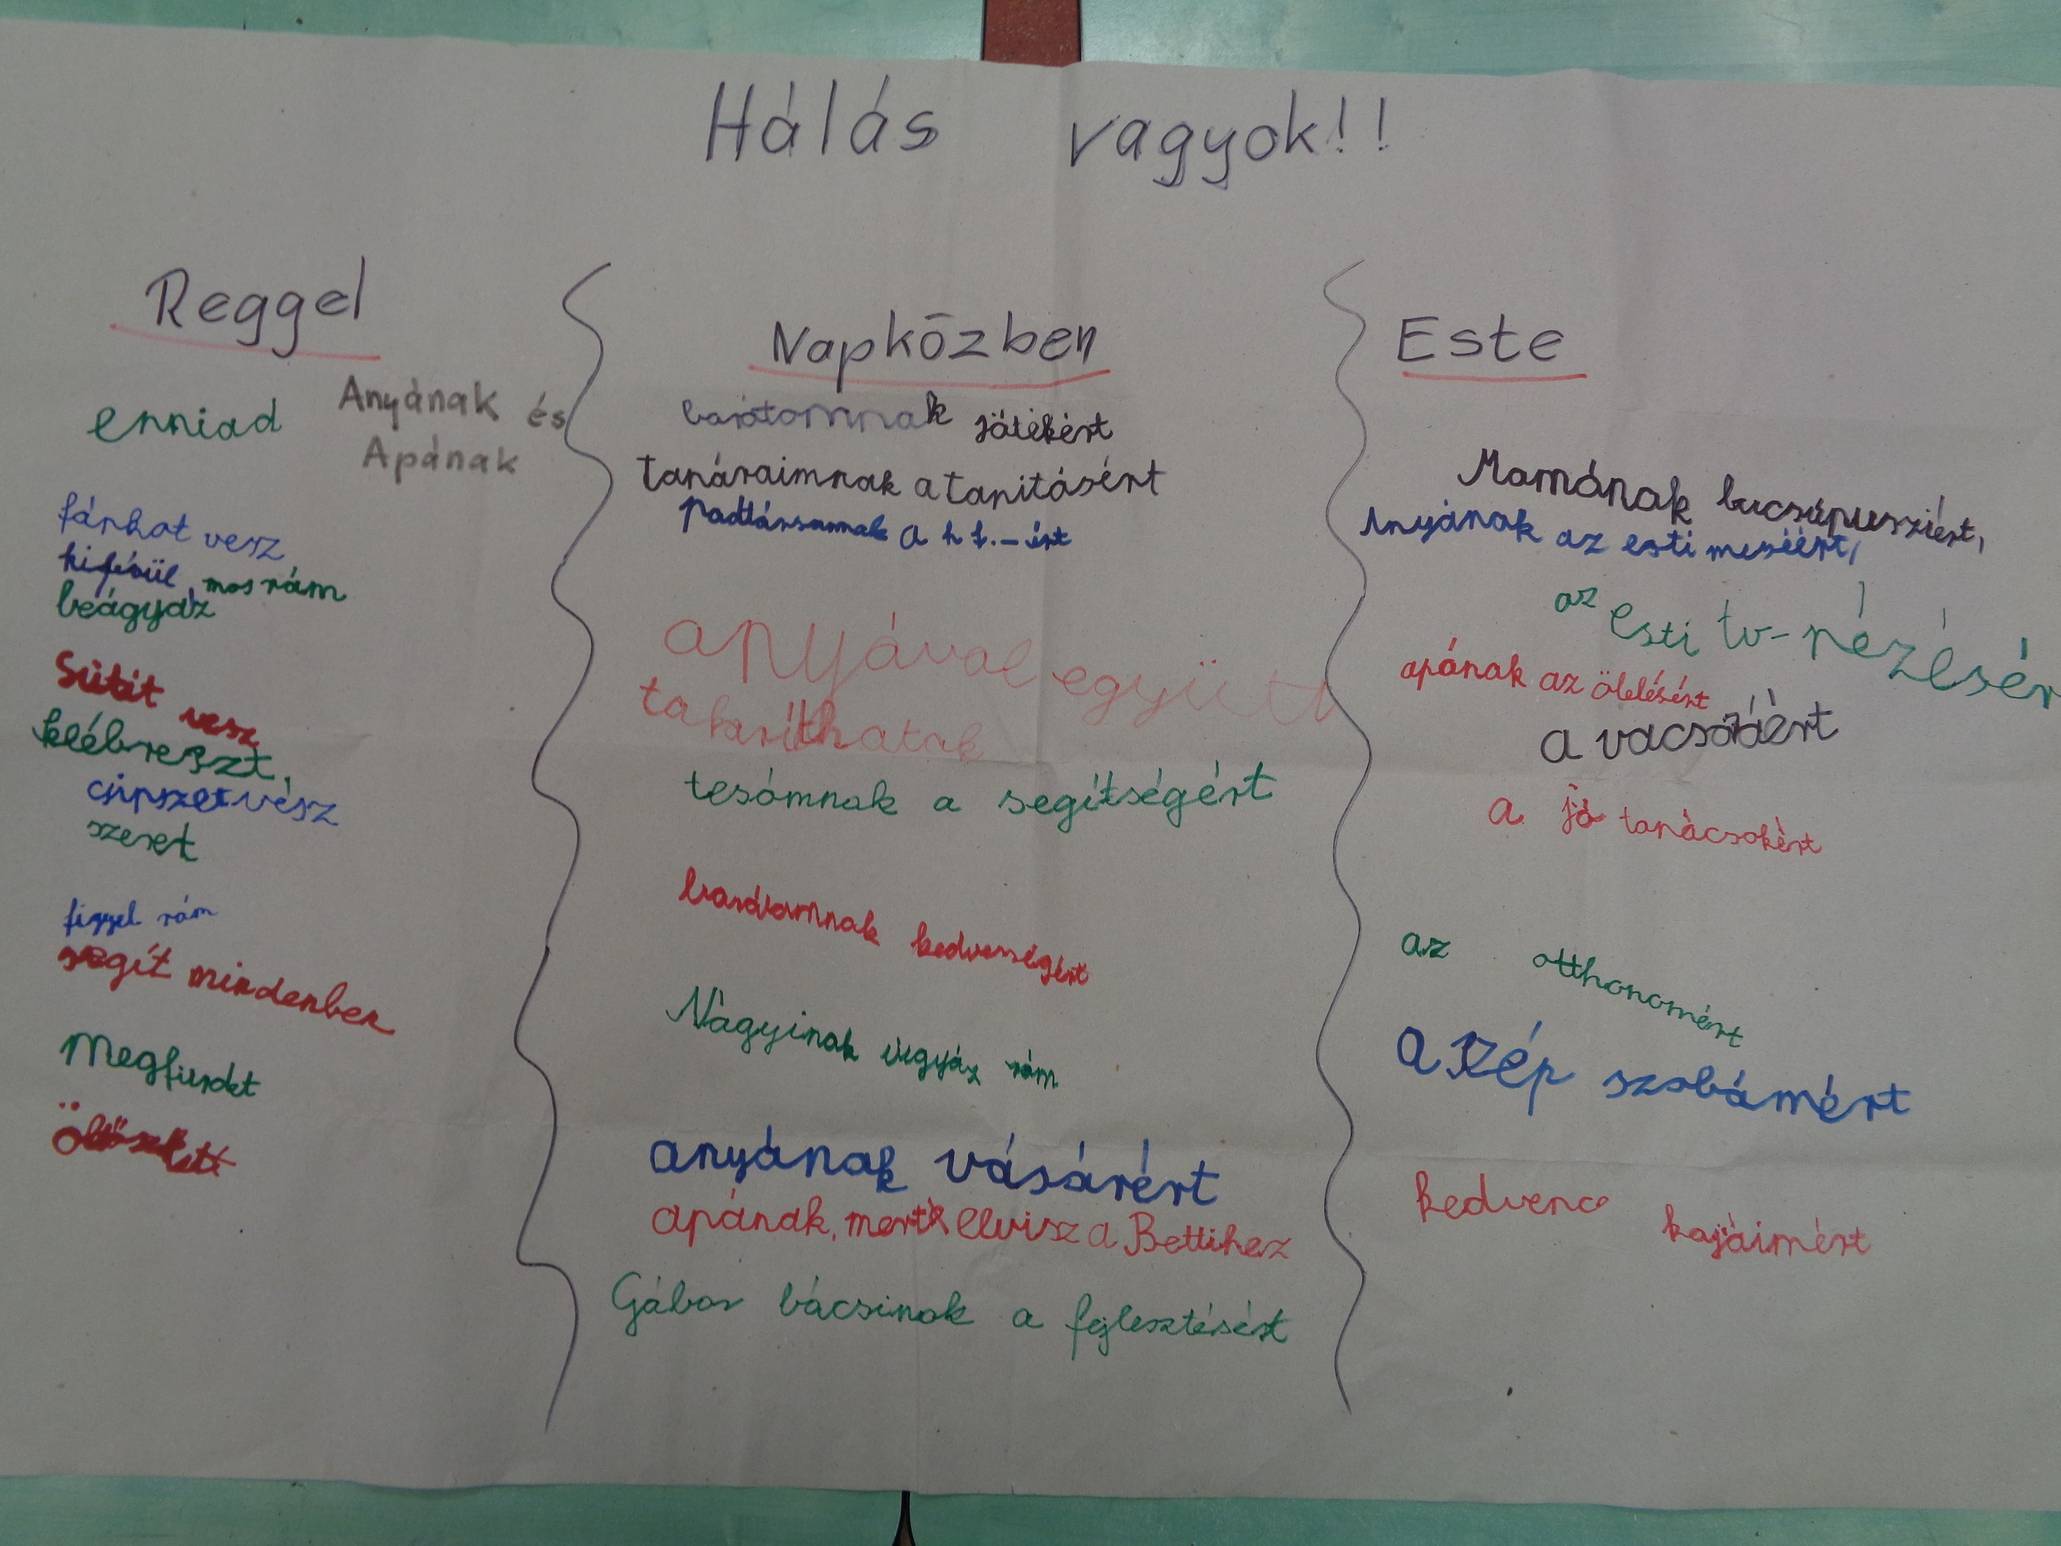 Hálás vagyok!!
Reggel
enniad Anyának és
Apának
fánkot vesz
kifésül, mos rám
beágyaz
Sütit vesz
klébreszt,
csipszet vész
szeret
figyel rám
segít mindenben
Megfürdet
Napközben
barátomnak játékért
tanáraimnak a tanitásért
Padtársamnak a h f.-ért
anyával együtt
takaríthatok
tesómnak a segítségért
barátomnak kedvességért
Nagyinak vigyáz rám
anyának vásárért
apának, mert elvisz a Bettihez
Gábor bácsinak a fejlesztésért
Este
Mamának bucsúpusziért,
Anyának az esti meséért,
az esti tv-nézésér
apának az ölelésért
a vacsoráért
a jó tanácsokért
az otthonomért
a szép szobámért
kedvenc kajáimért